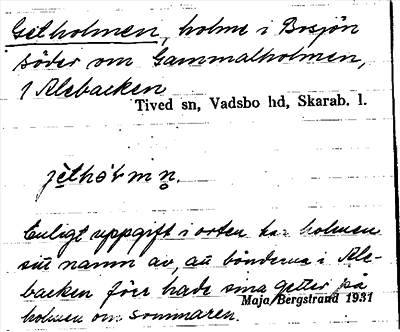 Getholmen, holme i Bosjön
söder om Gammalholmen,
1 Alebacken
Tived sn, Vadsbo hd, Skarab. l.
Enligt uppgift i orten har holmen
sitt namn av, att bönderna i Ale-
backen förr hade sina getter på
Maja Bergstrand 1931
holmen om sommaren.